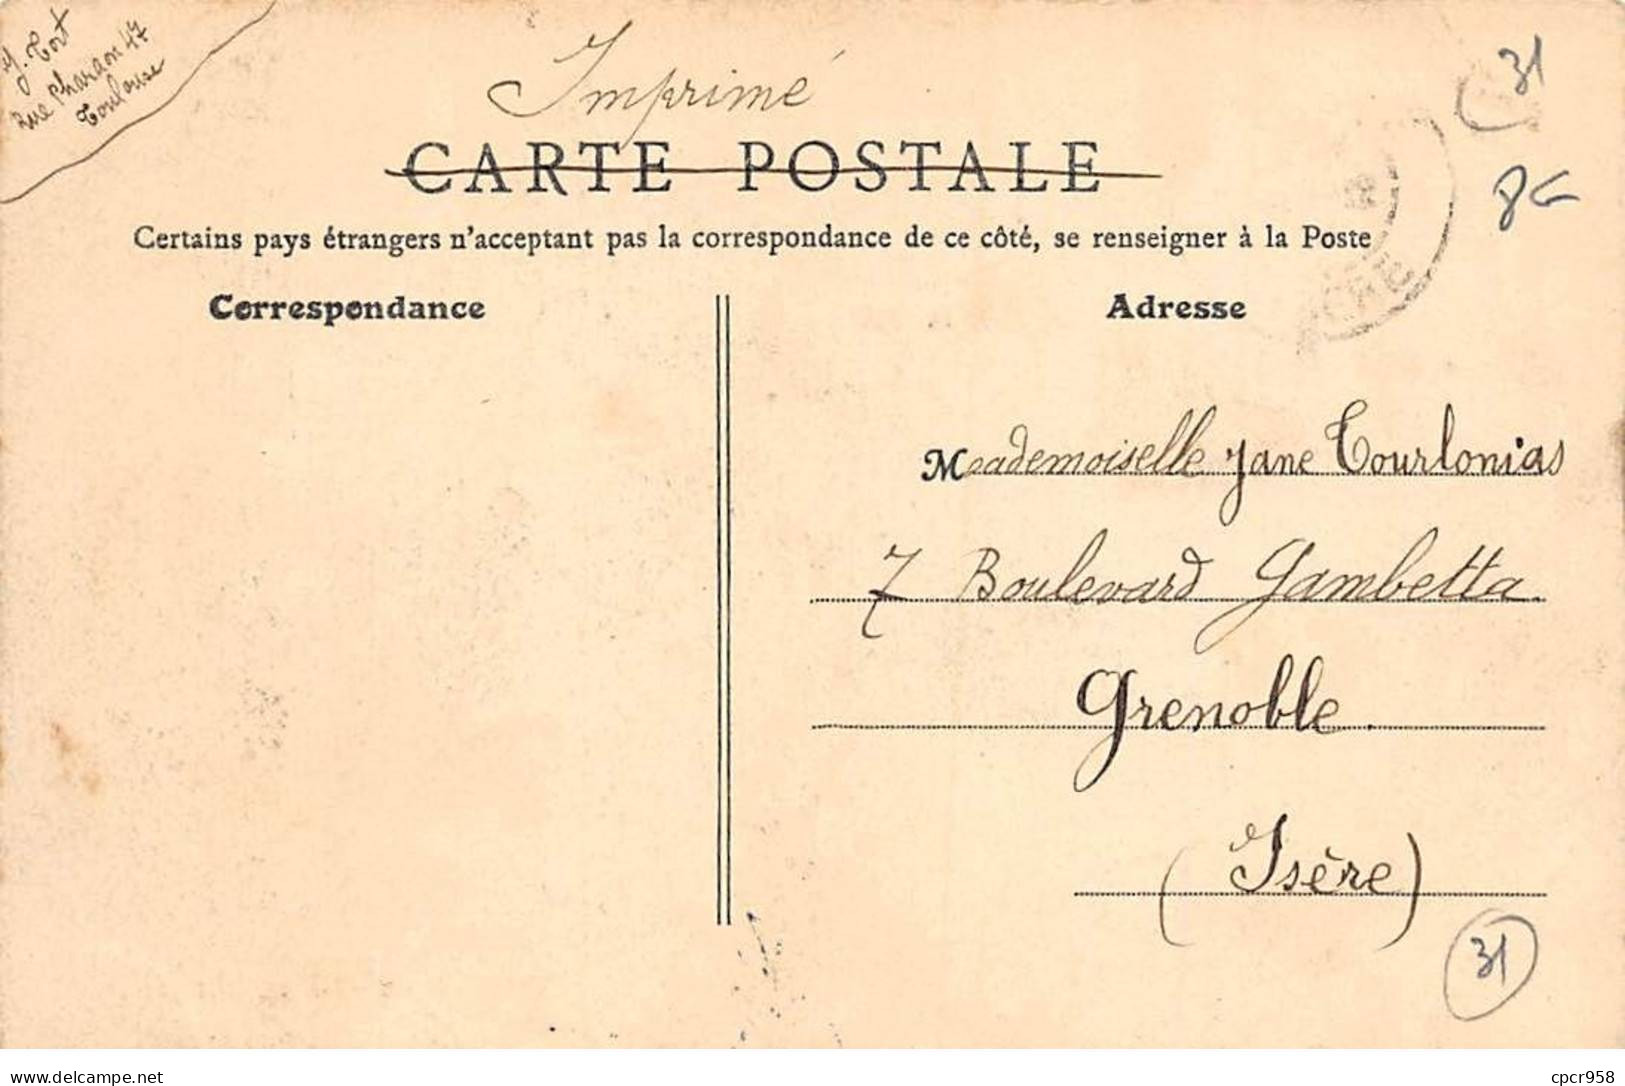 Y. Tort
Rue Pharaon 47
Toulouse
Imprimé
31
CARTE POSTALE
Certains pays étrangers n'acceptant pas la correspondance de ce côté, se renseigner à la Poste
Correspondance
Adresse
Mademoiselle Jane Tourlonias
7 Boulevard Gambetta.
Grenoble.
(Isère)
31
delcampe.net
cpcr958